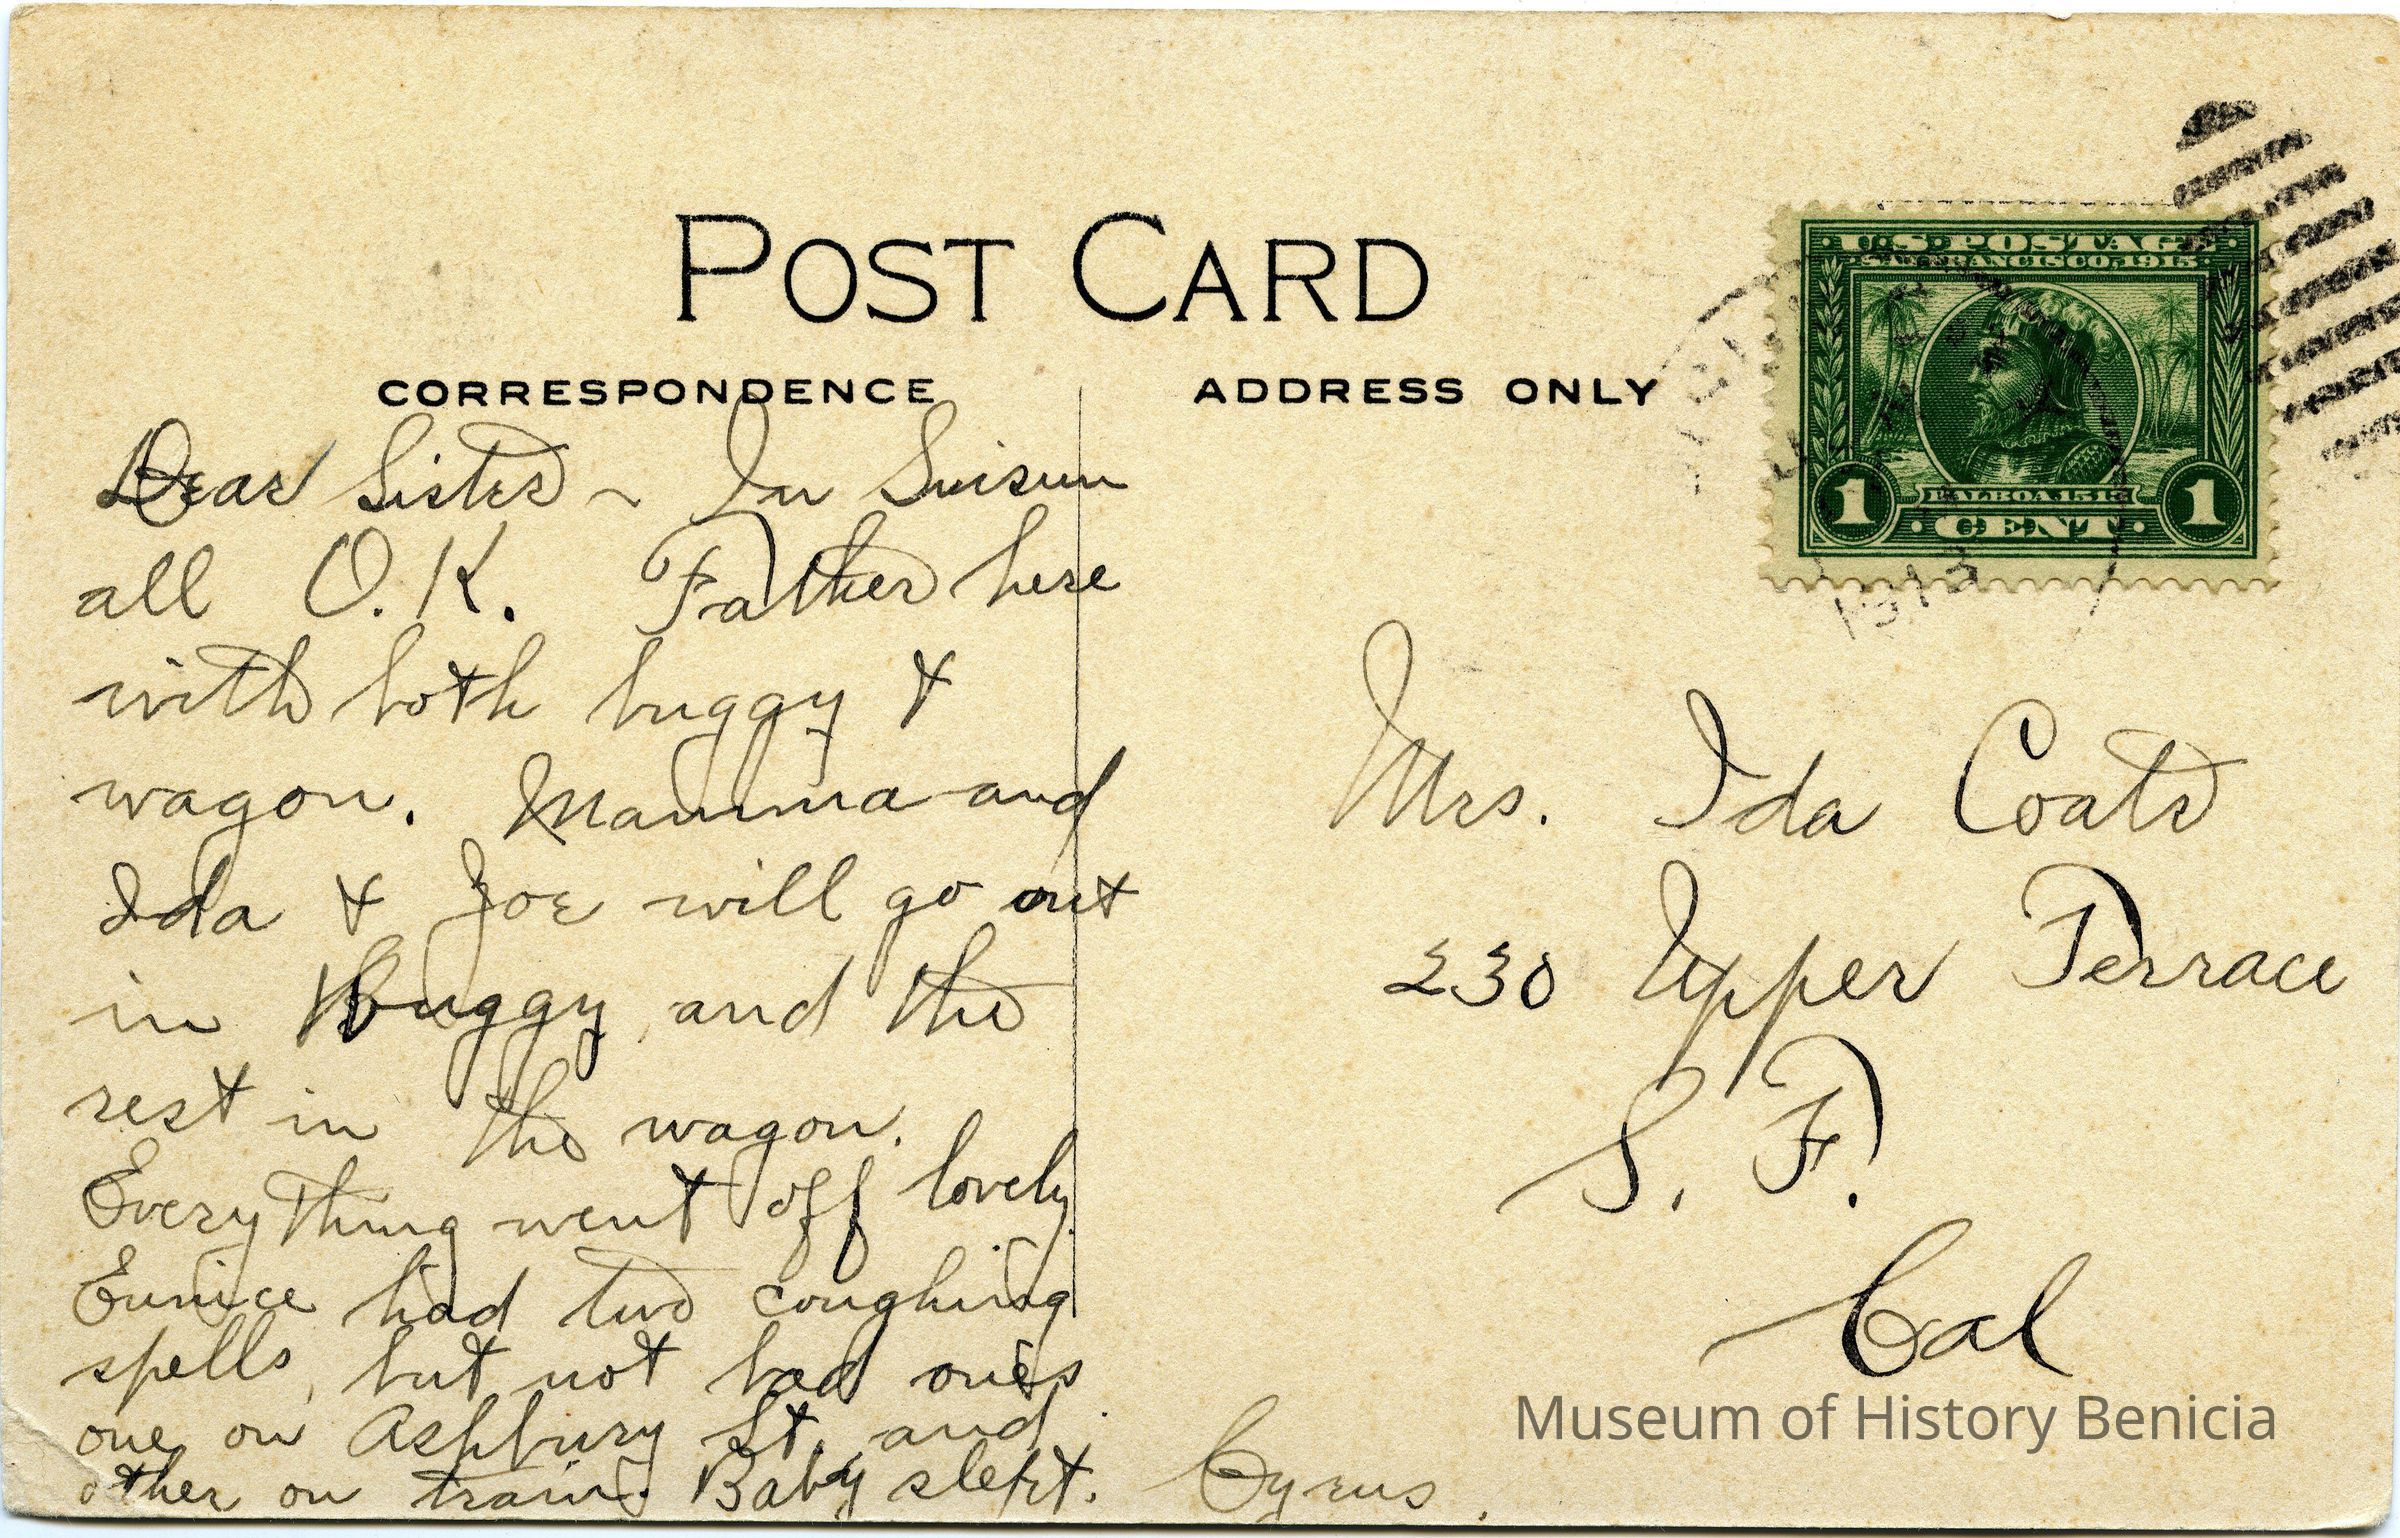 POST CARD
CORRESPONDENCE
ADDRESS ONLY
U.S. POSTAGE
SAN FRANCISCO, 1915
BALBOA 1513
1 CENT 1
1913
Dear Sister ~ In Suisun
all O.K. Father here
with both buggy &
wagon. Mamma and
Ida & Joe will go out
in Buggy and the
rest in the wagon.
Everything went off lovely.
Eunice had two coughing
spells, but not bad ones
one on Ashbury St. and
other on train. Baby slept. Cyrus.
Mrs. Ida Coats
230 Upper Terrace
S. F.
Cal
Museum of History Benicia